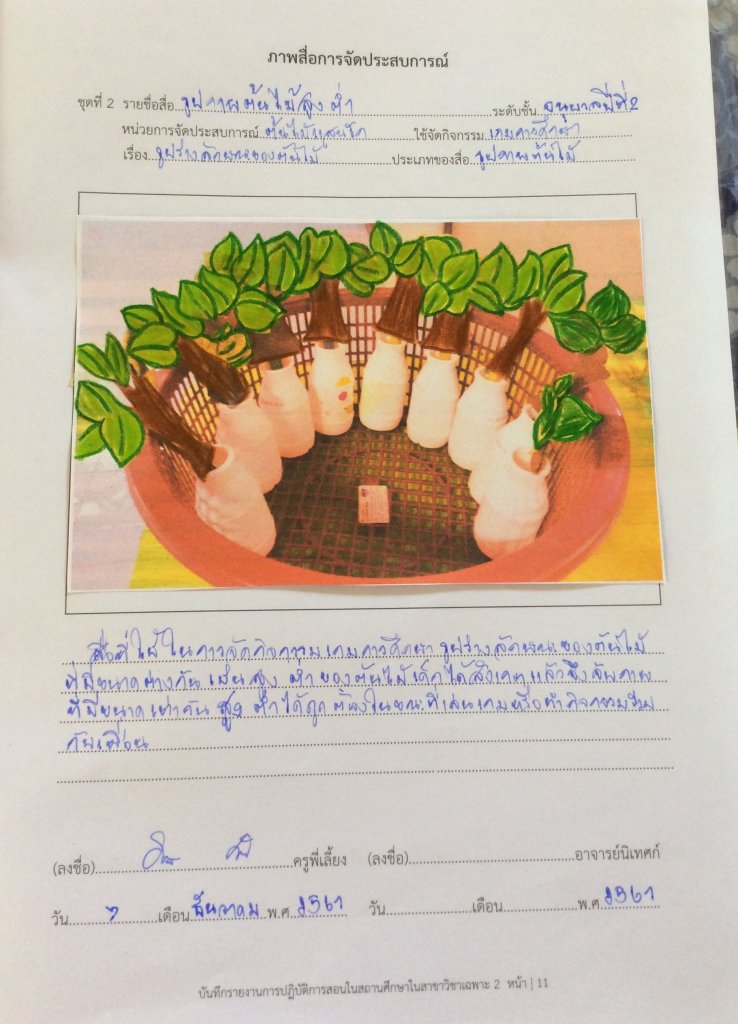 ภาพสื่อการจัดประสบการณ์
ชุดที่ 2 รายชื่อสื่อ รูปภาพต้นไม้สูง ต่ำ ระดับชั้น อนุบาลปีที่2
หน่วยการจัดประสบการณ์ ต้นไม้แสนรัก ใช้จัดกิจกรรม เกมการศึกษา
เรื่อง รูปร่างลักษณะของต้นไม้ ประเภทของสื่อ รูปภาพต้นไม้
สื่อที่ใช้ในการจัดกิจกรรม เกมการศึกษา รูปร่างลักษณะของต้นไม้
ที่มีขนาดต่างกัน เช่น สูง ต่ำ ของต้นไม้ เด็กได้สังเกต แล้วจึงจับภาพ
ที่มีขนาดเท่ากัน สูง ต่ำ ได้ถูกต้องในขณะที่เล่นเกมหรือทำกิจกรรมร่วม
กับเพื่อน
(ลงชื่อ) ครูพี่เลี้ยง (ลงชื่อ) อาจารย์นิเทศก์
วัน 7 เดือน ธันวาคม พ.ศ. 2561 วัน เดือน พ.ศ. 2561
บันทึกรายงานการปฏิบัติการสอนในสถานศึกษาในสาขาวิชาเฉพาะ 2 หน้า | 11